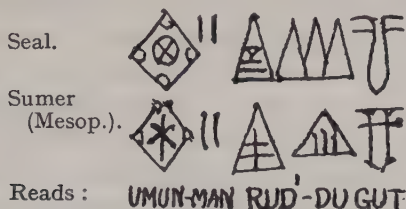 Seal.
Sumer
(Mesop.).
Reads : UMUN-MAN RUD'-DU GUT